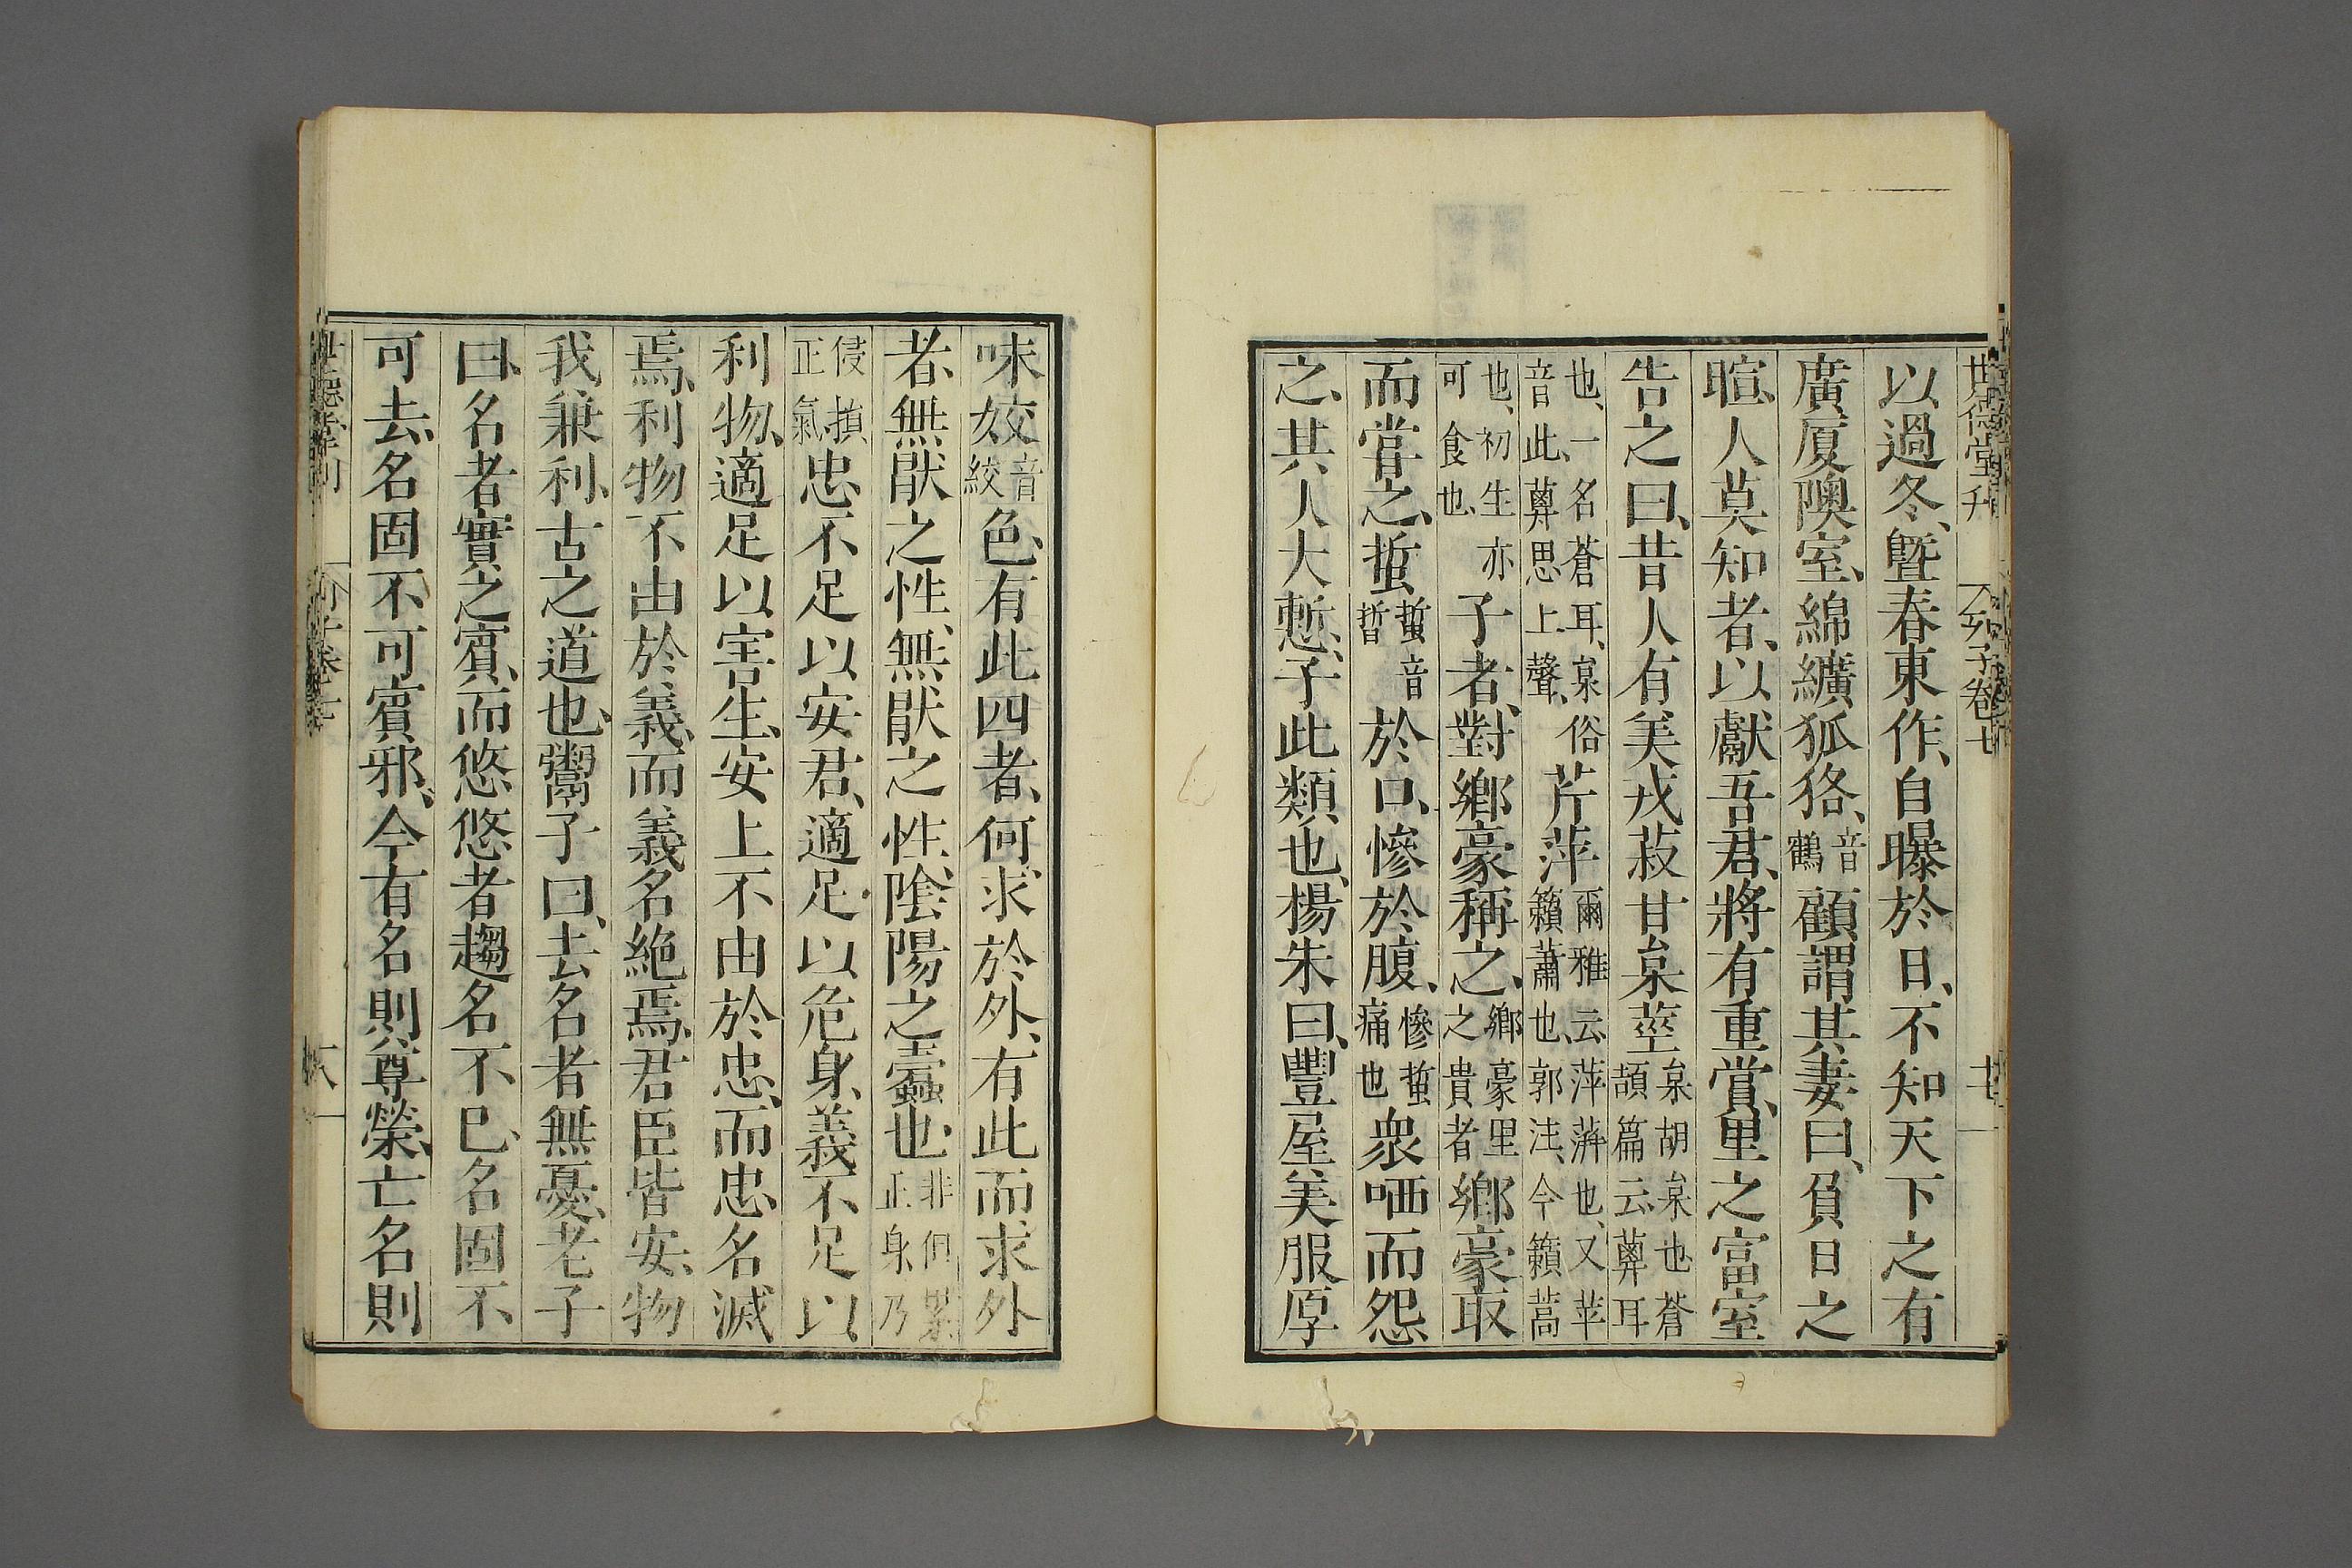 世德堂刊 列子卷七
以過冬、曁春東作、自曝於日、不知天下之有
廣厦隩室、綿纊狐狢、音鶴顧謂其妻曰、負日之
暄、人莫知者、以獻吾君、將有重賞、里之富室
告之曰、昔人有美戎菽甘枲莖枲胡枲也、蒼頡篇云、䔑耳
也、一名蒼耳、枲俗音此、䔑思上聲、芹萍爾雅云、萍蓱也、又苹籟蕭也、郭注、今籟蒿
也、初生亦可食也、子者、對鄉豪稱之、鄉豪里之貴者鄉豪取
而嘗之、蜇蜇音晢於口、慘於腹、慘蜇痛也衆哂而怨
之、其人大慙、子此類也、楊朱曰、豐屋美服厚
味姣音絞色、有此四者、何求於外、有此而求外
者、無猒之性、無猒之性、陰陽之蠹也、非但累正身、乃
侵損正氣、忠不足以安君、適足以危身、義不足以
利物、適足以害生、安上不由於忠、而忠名滅
焉、利物不由於義、而義名絶焉、君臣皆安、物
我兼利、古之道也、鬻子曰、去名者無憂、老子
曰、名者實之賓、而悠悠者趨名不已、名固不
可去、名固不可賓邪、今有名則尊榮、亡名則